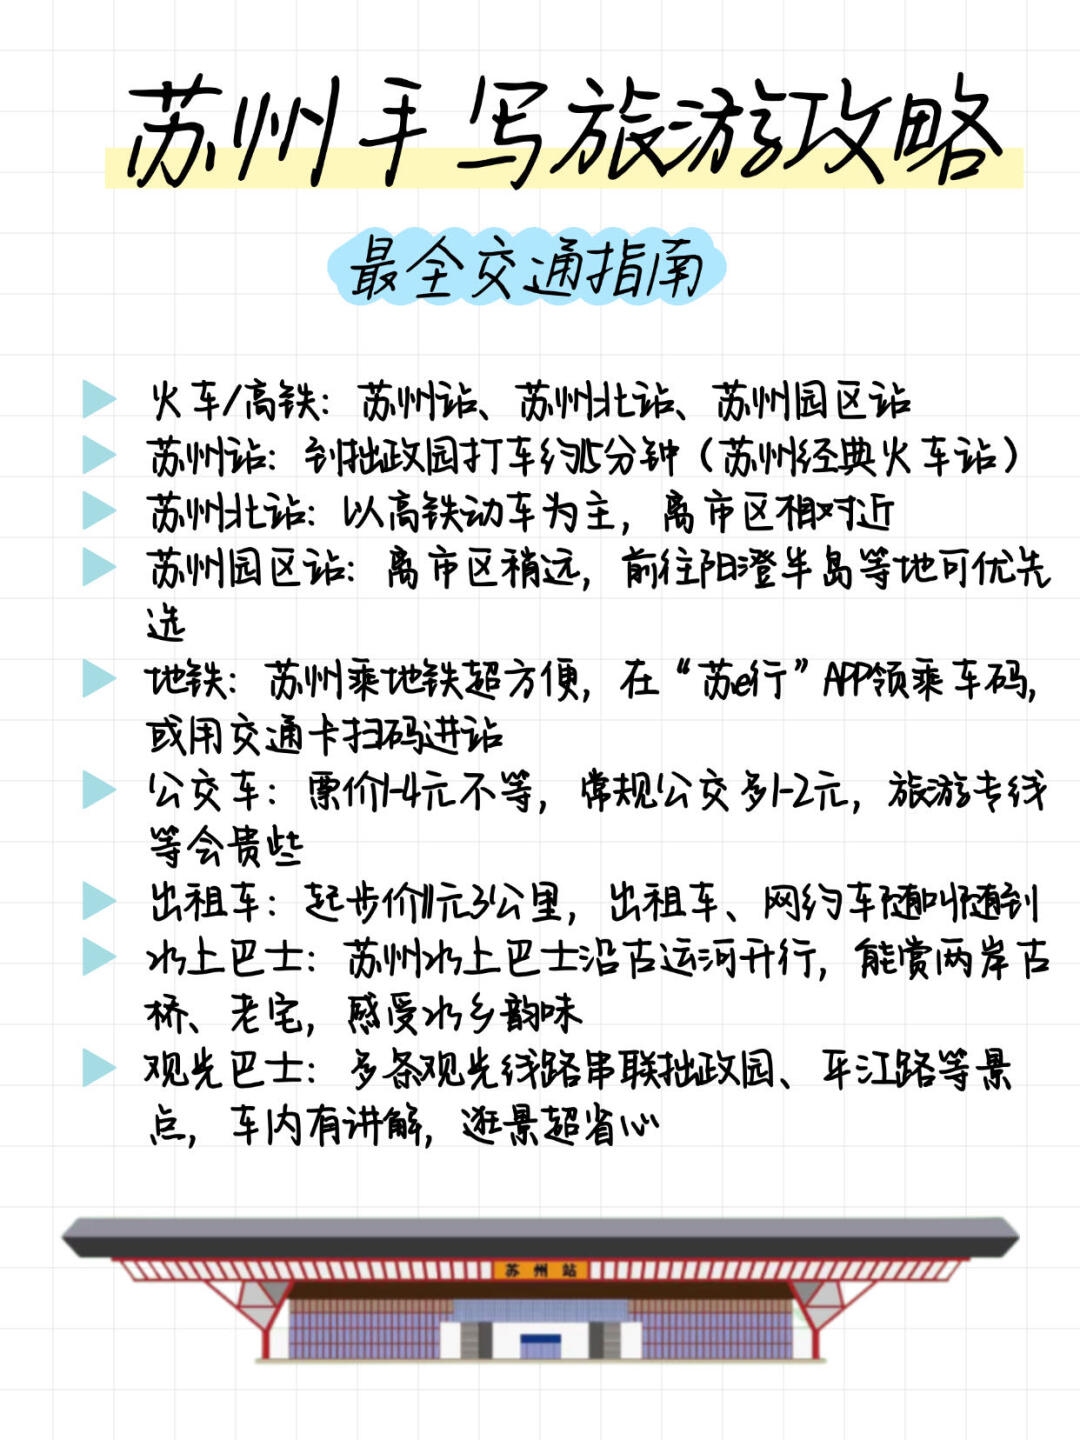 苏州手写旅游攻略
最全交通指南
火车/高铁：苏州站、苏州北站、苏州园区站
苏州站：到拙政园打车约15分钟（苏州经典火车站）
苏州北站：以高铁动车为主，离市区相对近
苏州园区站：离市区稍远，前往阳澄半岛等地可优先
选
地铁：苏州乘地铁超方便，在“苏e行”APP领乘车码，
或用交通卡扫码进站
公交车：票价1-4元不等，常规公交多1-2元，旅游专线
等会贵些
出租车：起步价11元3公里，出租车、网约车随叫随到
水上巴士：苏州水上巴士沿古运河开行，能赏两岸古
桥、老宅，感受水乡韵味
观光巴士：多条观光线路串联拙政园、平江路等景
点，车内有讲解，逛景超省心
苏州站